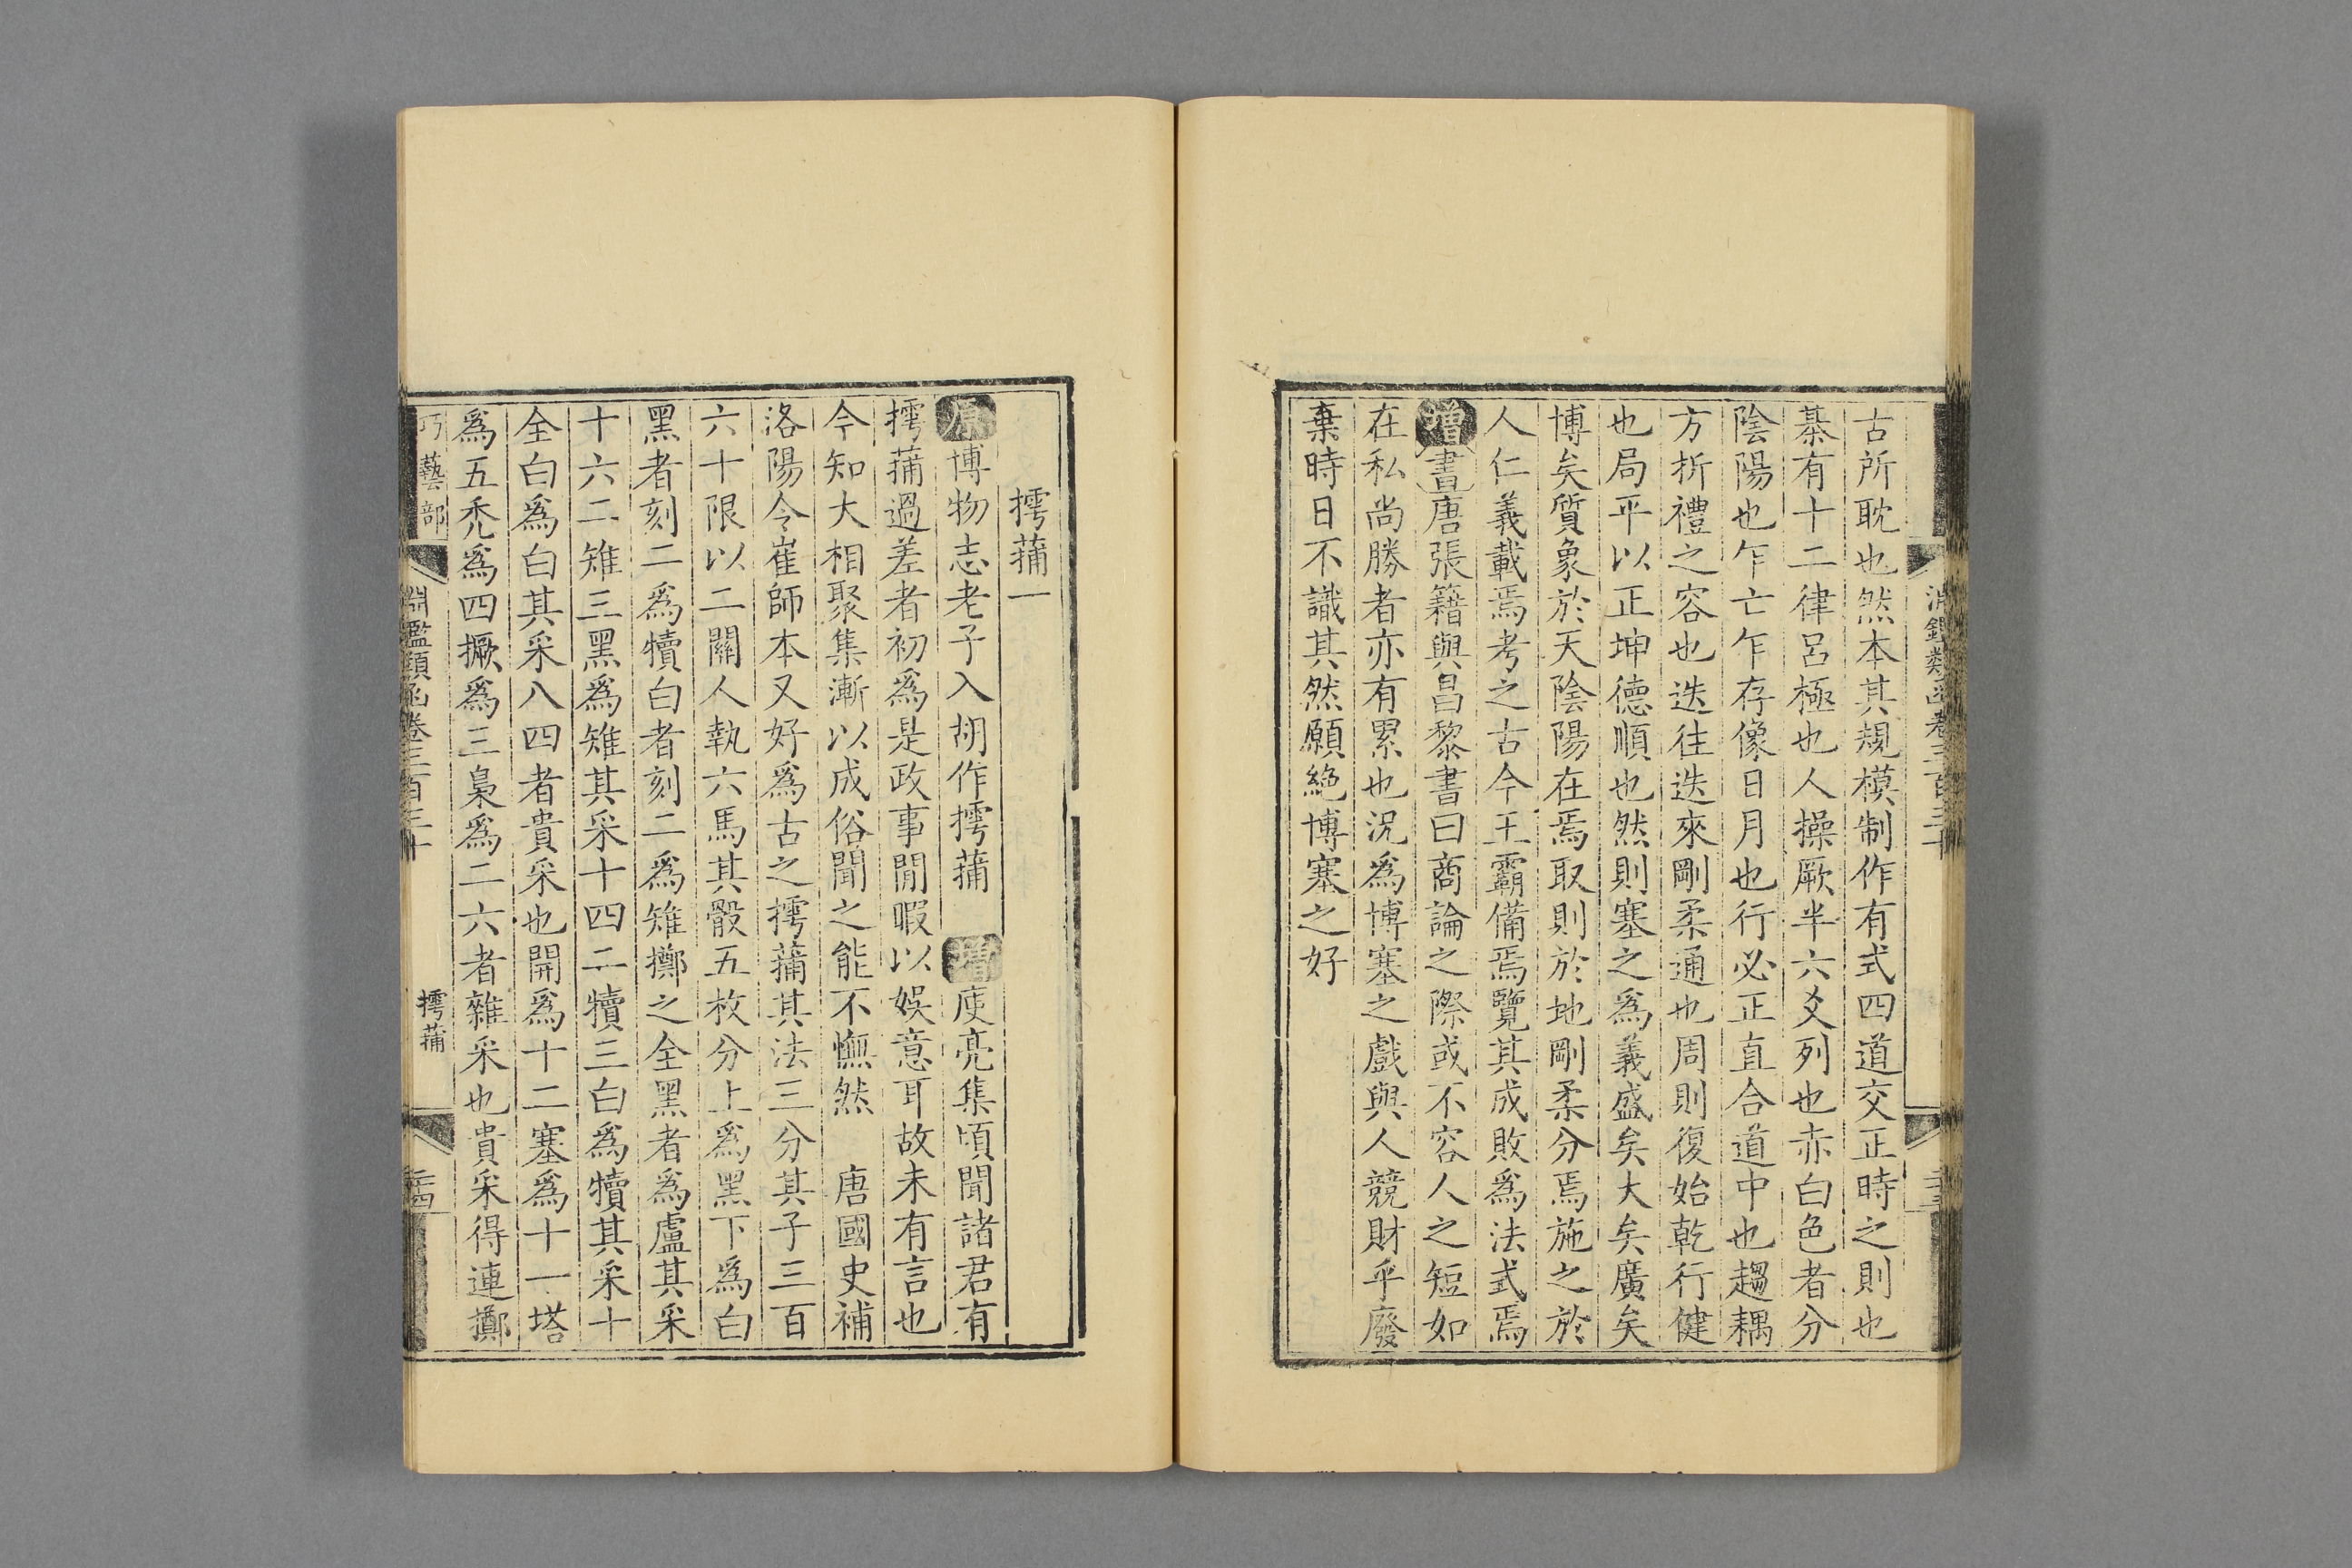 古所耽也然本其規模制作有式四道交正時之則也
棊有十二律呂極也人操厥半六爻列也赤白色者分
陰陽也乍亡乍存像日月也行必正直合道中也趨耦
方折禮之容也迭往迭來剛柔通也周則復始乾行健
也局平以正坤德順也然則塞之爲義盛矣大矣廣矣
博矣質象於天陰陽在焉取則於地剛柔分焉施之於
人仁義載焉考之古今王霸備焉覽其成敗爲法式焉
增書唐張籍與昌黎書曰商論之際或不容人之短如
在私尚勝者亦有累也況爲博塞之戲與人競財乎廢
棄時日不識其然願絕博塞之好
樗蒲一
原博物志老子入胡作樗蒲 增庾亮集頃聞諸君有
樗蒲過差者初爲是政事閒暇以娛意耳故未有言也
今知大相聚集漸以成俗聞之能不憮然 唐國史補
洛陽令崔師本又好爲古之樗蒲其法三分其子三百
六十限以二關人執六馬其骰五枚分上爲黑下爲白
黑者刻二爲犢白者刻二爲雉擲之全黑者爲盧其采
十六二雉三黑爲雉其采十四二犢三白爲犢其采十
全白爲白其采八四者貴采也開爲十二塞爲十一塔
爲五禿爲四撅爲三梟爲二六者雜采也貴采得連擲
巧藝部
淵鑑類函卷三百三十
樗蒲